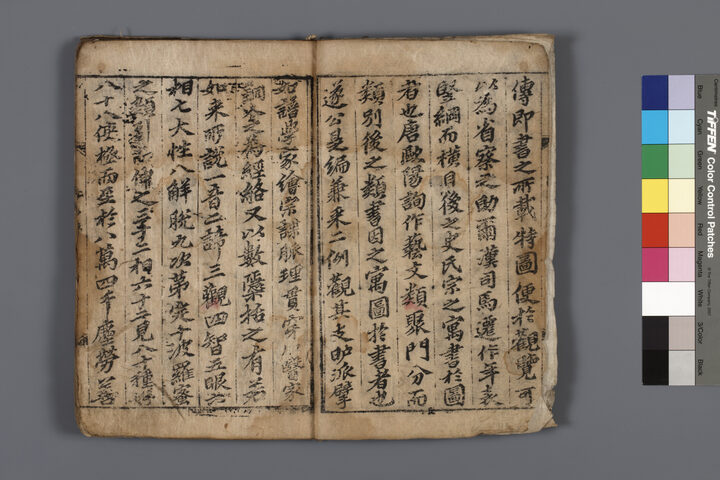 傳即書之所載特圖便於觀覽可
以為省察之助爾漢司馬遷作年表
竪綱而橫目後之史氏宗之寓書於圖
者也唐歐陽詢作藝文類聚門分而
類別後之類書因之寓圖於書者也
遂公是編兼来二例觀其支派擘
如譜學家繪宗諜脈理貫穿醫家
之為經絡又以數櫽括之有若
如来所說一音二諦三觀四智五眼六
相七大性八解脫九次第定十波羅蜜
之類佛之三十二相六十二見八十種好
八十八使極而至於八萬四千塵勞若
Blue
Cyan
Green
Yellow
Red
Magenta
White
3/Color
Black
TIFFEN Color Control Patches